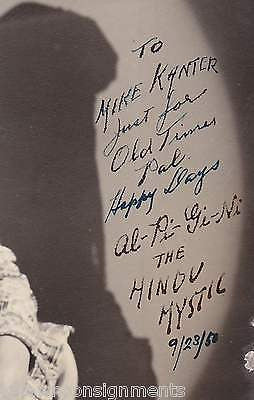 TO
MIKE KANTER
Just for
Old Times
Pal.
Happy Days
Al-Pi-Gi-Ni
THE
HINDU
MYSTIC
9/23/50